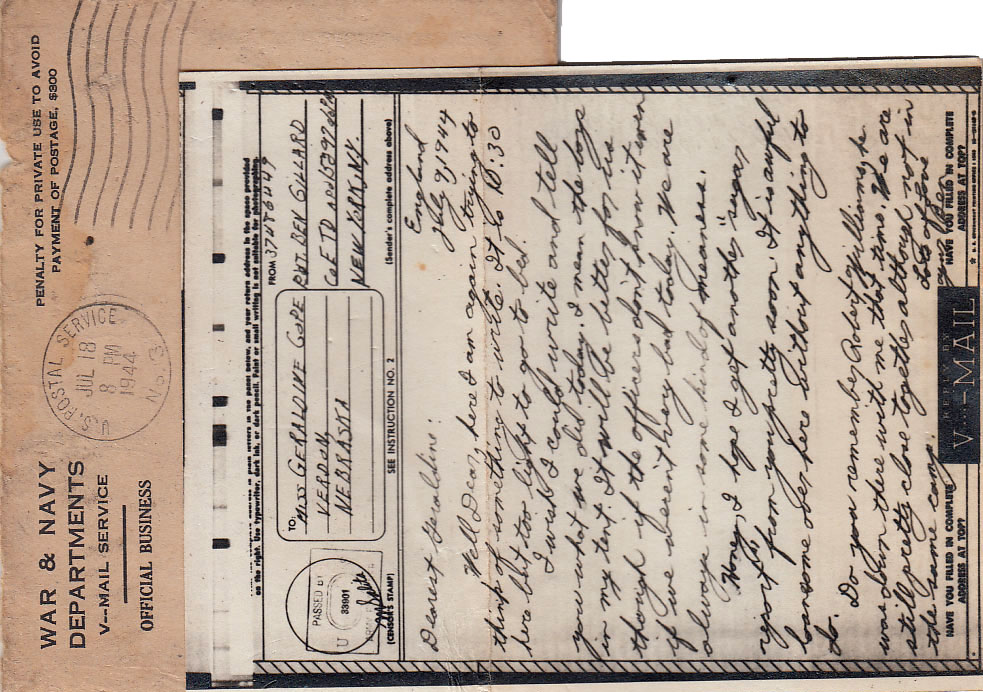 WAR & NAVY
DEPARTMENTS
V--MAIL SERVICE
OFFICIAL BUSINESS
PENALTY FOR PRIVATE USE TO AVOID
PAYMENT OF POSTAGE, $300
U.S. POSTAL SERVICE
JUL 18
8 PM
1944
No. 3
on the right. Use typewriter, dark ink, or dark pencil. Faint or small writing is not suitable for photographing.
TO:
MISS GERALDINE COPE
VERDON
NEBRASKA
FROM
PVT. BEN GILLARD
NEW YORK, N.Y.
PASSED BY
U
33901
(CENSOR'S STAMP)
SEE INSTRUCTION NO. 2
(Sender's complete address above)
England
July 9, 1944
Dearest Geraldine:
Well Dear, here I am again trying to
think of something to write. It is 10:30
here but too light to go to bed.
I wish I could write and tell
you what we did today. I mean the boys
in my tent. It will be better for us
though if the officers don't know it even
if we weren't very bad today. We are
always in some kind of meaness.
Honey, I hope I get another "sugar
report" from you pretty soon. It is awful
lonesome over here without anything to
do.
Do you remember Robert Williams, he
was down there with me that time. We are
still pretty close together although not in
the same camp.
Lots of love
Ben
HAVE YOU FILLED IN COMPLETE
ADDRESS AT TOP?
V--MAIL
HAVE YOU FILLED IN COMPLETE
ADDRESS AT TOP?